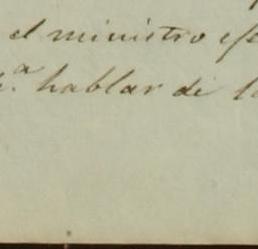 el ministro
hablar de